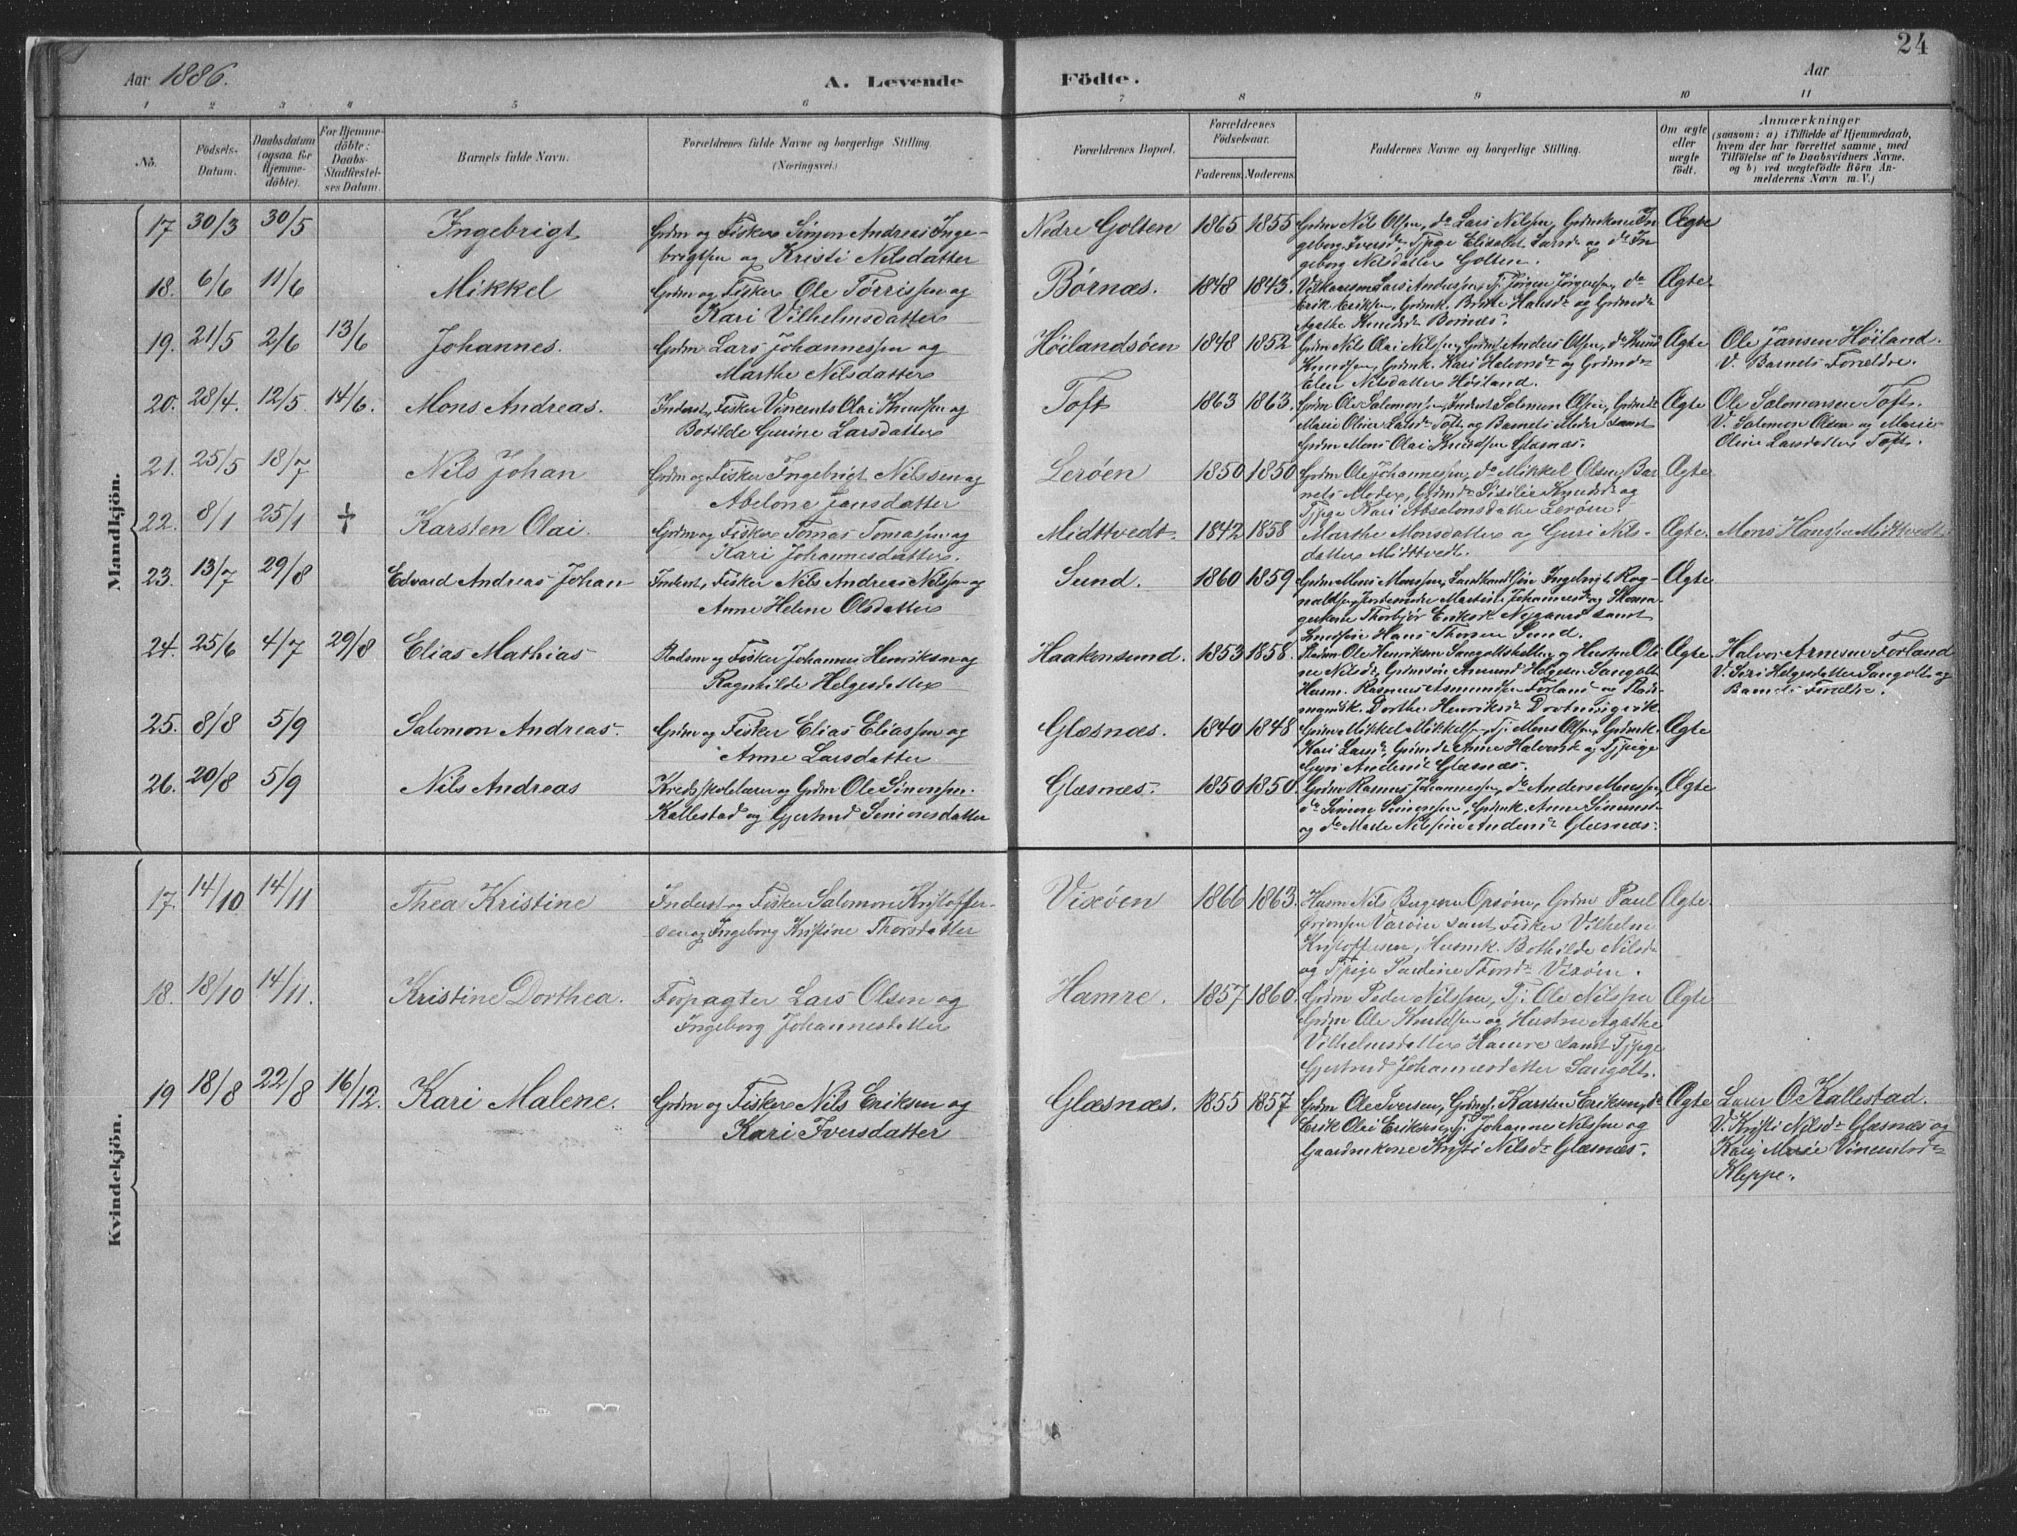 24
Aar 1886.
A. Levende Födte.
Aar
1 2 3 4 5 6 7 8 9 10 11
No.
Födsels-
Datum.
Daabsdatum
(ogsaa for
Hjemme-
döbte).
For Hjemme-
döbte:
Daabs-
Stadfæstel-
ses Datum.
Barnets fulde Navn.
Forældrenes fulde Navne og borgerlige Stilling.
(Næringsvei.)
Forældrenes Bopæl.
Forældrenes
Födselsaar.
Faderens. Moderens.
Faddernes Navne og borgerlige Stilling.
Om ægte
eller
uægte
födt.
Anmærkninger
(saasom: a) i Tilfælde af Hjemmedaab,
hvem der har forrettet samme, med
Tilföielse af to Daabsvidners Navne.
og b) ved uægtefödte Börn An-
melderens Navn m. V.)
Mandkjön.
17 30/3 30/5 Ingebrigt
Grdm og Fisker Simon Andreas Inge-
brigtsen og Kristi Nilsdatter
Nedre Golten 1865 1855
Grdm Nils Olsen, do Lars Nilsen, Grdmkone In-
geborg Iversdr, Tjpige Elisabet Larsdr og do In-
geborg Nilsdatter Golten.
Ægte
18. 6/6 11/6 Mikkel
Grdm og Fisker Ole Tørrissen og
Kari Vilhelmsdatter
Børnæs. 1848 1843.
Lars Anderssen, Tj. Jørgen Jørgensen, do
Erik Eriksen, Grdmk. Brithe Hansdr og Grdmdr
Agathe Knudsdr Børnæs.
Ægte
19. 21/5 2/6 13/6 Johannes.
Grdm Lars Johannessen og
Marthe Nilsdatter
Höilandsöen 1848 1852
Grdm Nils Olai Nilsen, Grdms Anders Olsen, do Knud
Knudsen, Grdmk. Kari Halvorsdr og Grdmdr
Elen Nilsdatter Höiland.
Ægte
Ole Jansen Höiland.
V. Barnets Forældre.
20. 28/4. 12/5. 14/6. Mons Andreas.
Inderst, Fisker Vincents Olai Knudsen og
Botilde Gurine Larsdatter
Toft 1863 1863.
Grdm Ole Salomonsen, Inderst Salomon Olsen, Grdmdr
Marie Oline Larsdr Toft, og Barnets Moder samt
Grdm Mons Olai Knudsen Glæsnæs.
Ægte
Ole Salomonsen Toft.
V. Salomon Olsen og Marie
Oline Larsdatter Toft.
21. 25/5 18/7 Nils Johan
Grdm og Fisker Ingebrigt Nilssen og
Abelone Jansdatter
Leröen 1850 1850
Grdm Ole Johannessen, do Mikkel Olsen, Bar-
nets Moder, Grdmdr Sisilie Knudsdr og
Tjpige Kari Absalonsdatter Leröen.
Ægte
22. 8/1 25/1 † Karsten Olai.
Grdm og Fisker Tomas Tomassen og
Kari Johannesdatter.
Midttvedt. 1842 1858
Marthe Monsdatter og Guri Nils-
datter Midttvedt.
Ægte. Mons Hansen Midttvedt.
23. 13/7 29/8 Edvard Andreas Johan
Inderst, Fisker Nils Andreas Nilssen og
Anne Helene Olsdatter
Sund. 1860 1859
Grdm Mons Monssen, Ingebrigt Rag-
naldsen, Jordemoder Martine Johannesdr og Skoma-
gerkone Thorbjør Eriksdr Nygaard samt
Hans Thorsen Sund.
Ægte
24. 25/6 4/7 29/8 Elias Mathias
Pladsm og Fisker Johannes Henriksen og
Ragnhilde Helgesdatter
Haakensund. 1853 1858.
Pladsm Ole Henriksen Sangoltskotten og Hustru Oli-
ne Nilsdr Amund Helgesen Sangolt
Husm. Rasmus Asmundsen Forland og Plads-
mandsk. Dorthe Henriksdr
Ægte.
Halvor Arnesen Forland
V. Siri Helgesdatter Sangolt og
Barnets Forældre.
25. 8/8 5/9 Salomon Andreas.
Grdm og Fisker Elias Eliassen og
Anne Larsdatter
Glæsnæs. 1840 1848
Grdm Mikkel Mikkelsen, Tj. Mons Olsen, Grdmk.
Kari Larsdr, Grdmdr Anne Halvorsdr og Tjpige
Guri Andersdr Glæsnæs.
Ægte
26. 20/8 5/9 Nils Andreas
Kredsskolelærer og Grdm Ole Simonsen
Kallestad og Gjertrud Simonsdatter
Glæsnæs. 1850 1850.
Grdm Rasmus Johannessen, do Anders Monssen,
do Simon Simonssen, Grdmk. Anne Simonsdr
og do Marte Nilsine Andersdr Glæsnæs.
Ægte
Kvindekjön.
17. 14/10 14/11 Thea Kristine
Inderst og Fisker Salomon Kristoffer-
sen og Ingeborg Kristine Thorsdatter
Vixöen 1866 1863.
Husm Nils Bergesen Opsöen, Grdm Paul
Grjonsen Varöen samt Fisker Vilhelm
Kristoffersen, Husmk. Bothilde Nilsdr
og Tjpige Pauline Thorsdr Vixöen.
Ægte.
18. 18/10 14/11. Kristine Dorthea.
Forpagter Lars Olsen og
Ingeborg Johannesdatter
Hamre. 1857 1860.
Grdm Peder Nilssen, Tj. Ole Nilssen
Grdm Ole Knudssen og Hustru Agathe
Vilhelmsdatter Hamre samt Tjpige
Gjertrud Johannesdatter Sangolt.
Ægte
19 18/8 22/8 16/12. Kari Malene.
Grdm og Fisker Nils Eriksen og
Kari Iversdatter
Glæsnæs. 1855 1857
Grdm Ole Iversen, Grdms. Karsten Eriksen, do
Erik Olai Eriksen, Tj. Johannes Nilssen og
Gaardmkone Kristi Nilsdr Glæsnæs.
Ægte
Lærer O Kallestad.
V. Kristi Nilsdr Glæsnæs og
Kari Marie Vincentsdr
Kleppe.